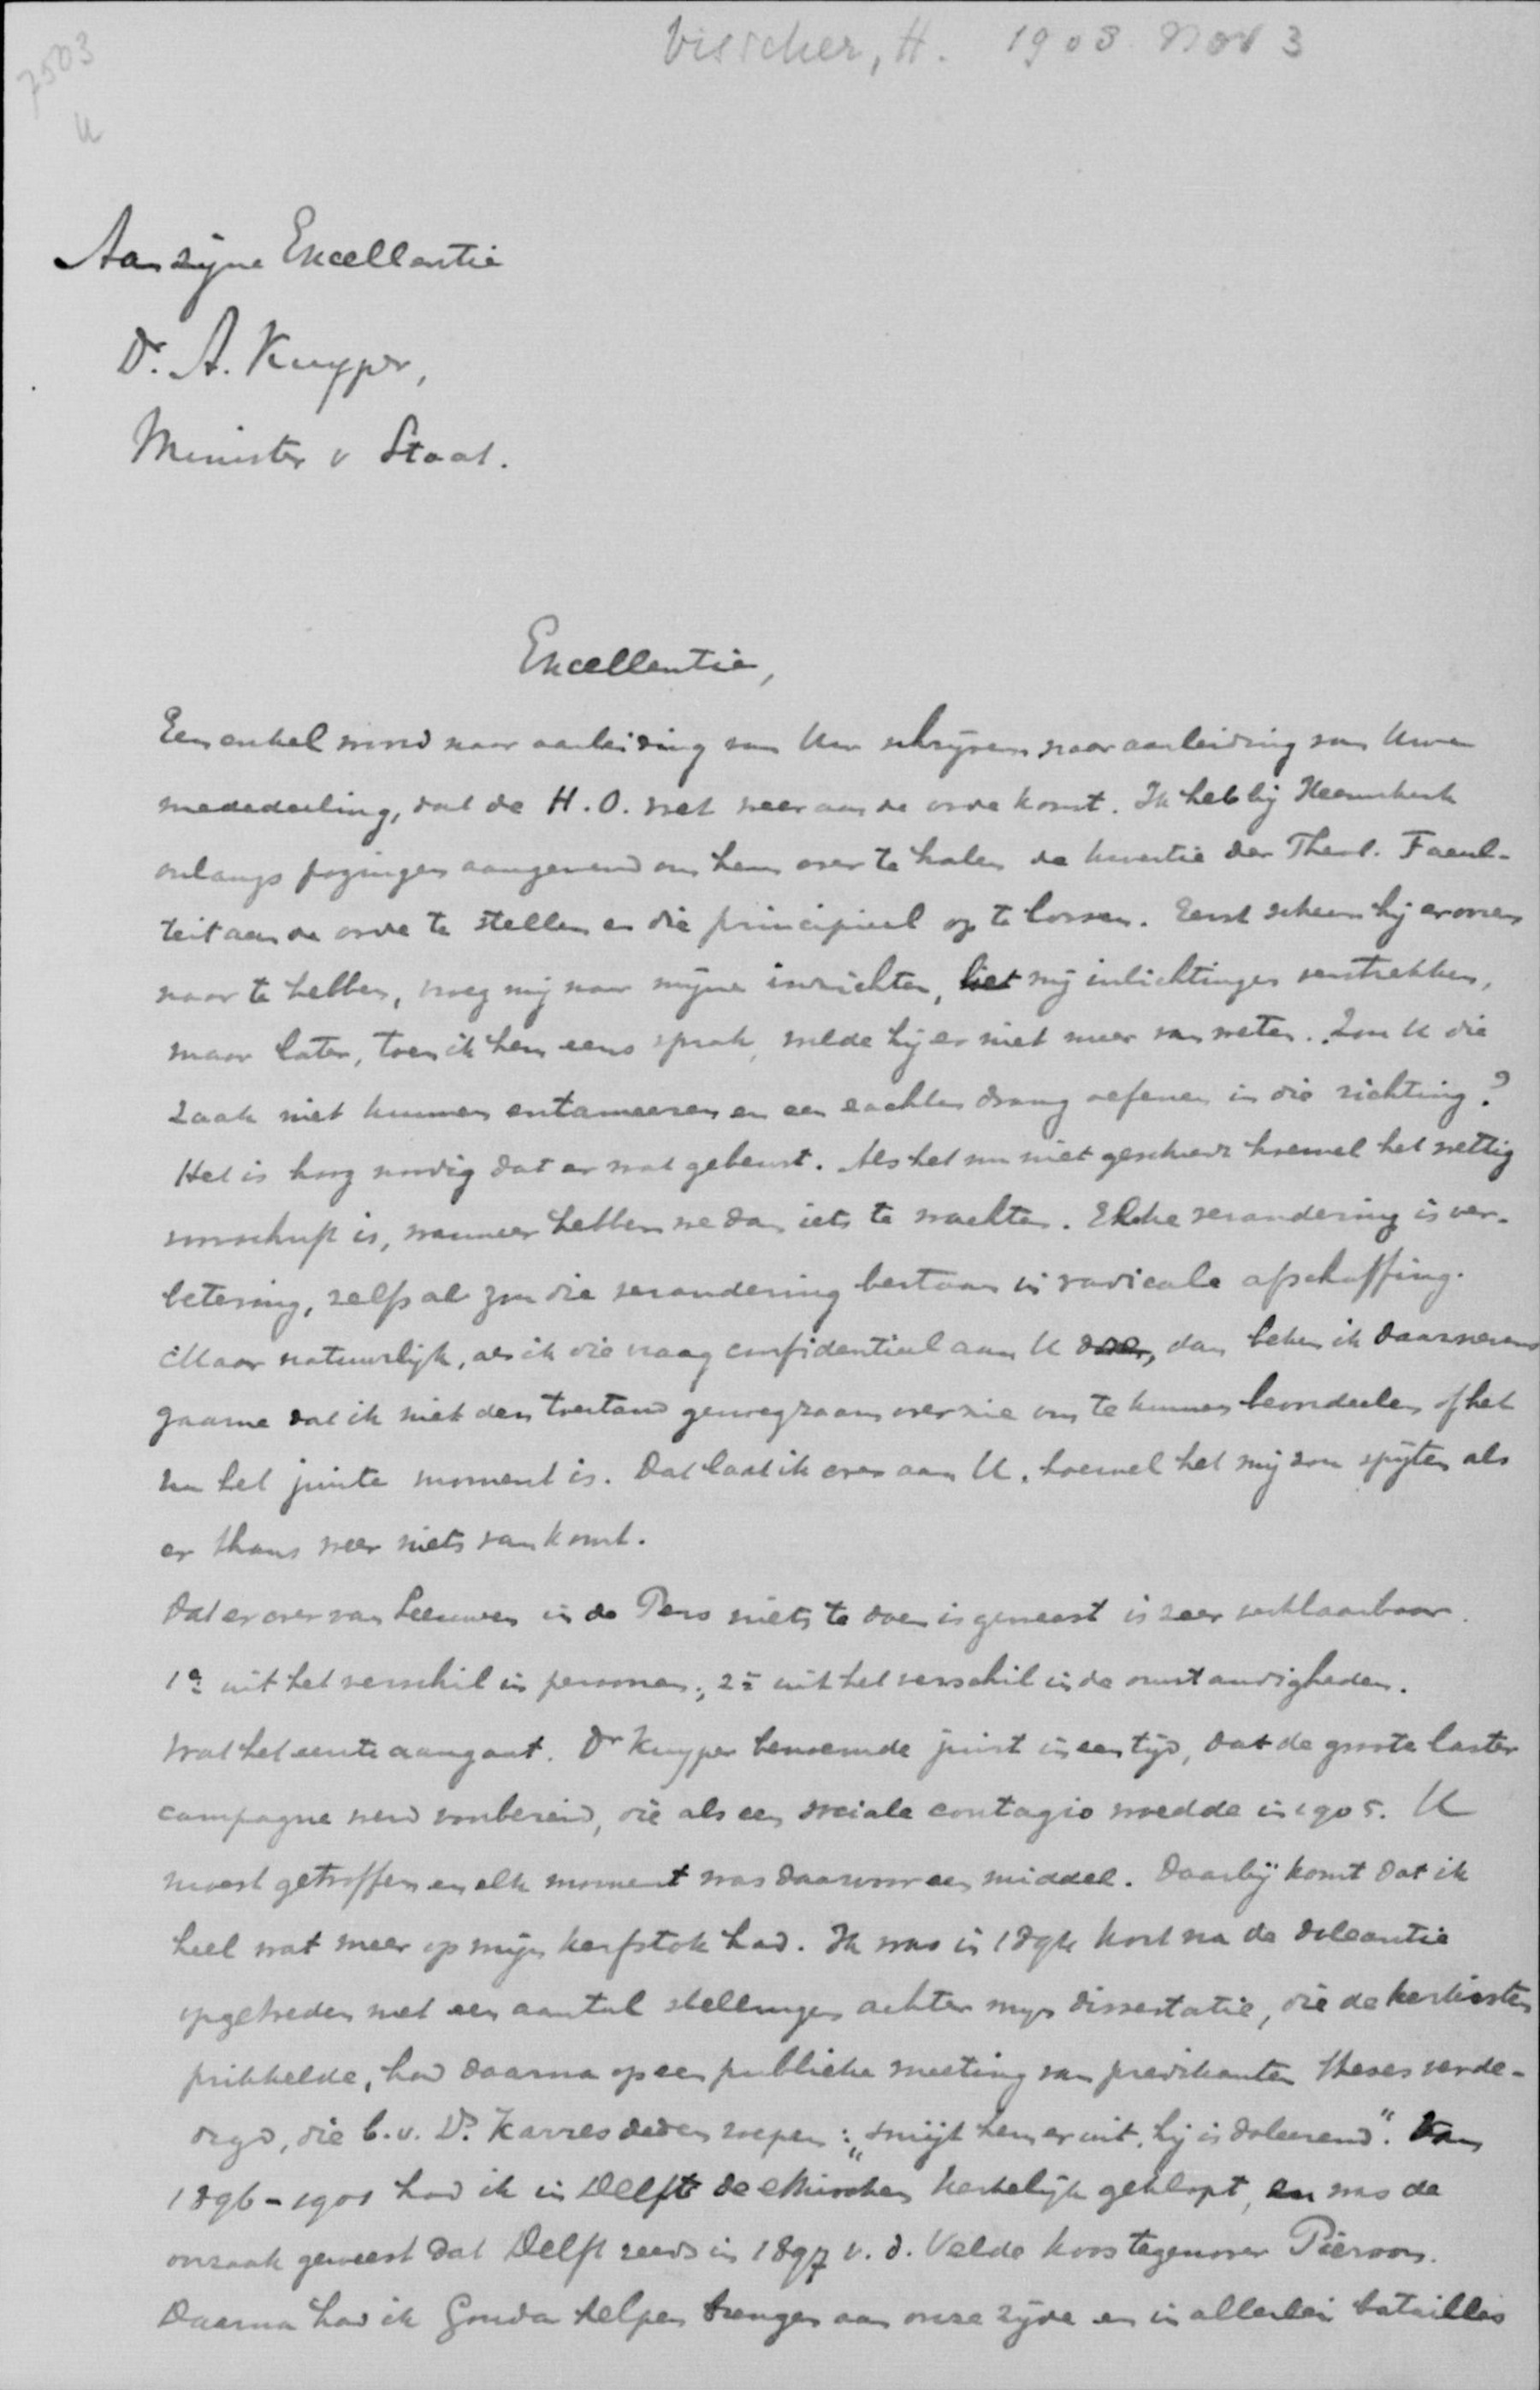 Visscher, H. 1908 Nov 3
7503
U
Aan zijne Excellentie
Dr. A. Kuyper,
Minister v Staat.
Excellentie,
Een enkel woord naar aanleiding van Uw schrijven naar aanleiding van Uwe
mededeeling, dat de H.O. wet weer aan de orde komt. Ik heb bij Heemskerk
onlangs pogingen aangewend om hem over te halen de kwestie der Theol. Facul-
teit aan de orde te stellen en die principieel op te lossen. Eerst scheen hij er ooren
naar te hebben, vroeg mij naar mijne inzichten, liet mij inlichtingen verstrekken,
maar later, toen ik hem eens sprak, wilde hij er niet meer van weten. Zou U die
zaak niet kunnen entameeren en een zachten drang oefenen in die richting?
Het is hoog noodig dat er wat gebeurt. Als het nu niet geschiedt hoewel het wettig
voorschrift is, wanneer hebben we dan iets te wachten. Elke verandering is ver-
betering, zelfs al zou die verandering bestaan in radicale afschaffing.
Maar natuurlijk, als ik die vraag confidentieel aan U doe, dan beken ik daarnevens
gaarne dat ik niet den toestand genoegzaam overzie om te kunnen beoordeelen of het
nu het juiste moment is. Dat laat ik over aan U, hoewel het mij zou spijten als
er thans weer niets van komt.
Dat er over van Leeuwen in de Pers niets te doen is geweest is zeer verklaarbaar.
1e uit het verschil in personen; 2e uit het verschil in de omstandigheden.
Wat het eerste aangaat. Dr Kuyper benoemde juist in een tijd, dat de groote laster
campagne werd voorbereid, die als een sociale contagio woedde in 1905. U
moest getroffen en elk moment was daarvoor een middel. Daarbij komt dat ik
heel wat meer op mijn kerfstok had. Ik was in 1894 kort na de doleantie
opgetreden met een aantal stellingen achter mijn dissertatie, die de kerkisten
prikkelde, had daarna op een publieke meeting van predikanten theses verde-
digd, die b.v. Ds. Karres deden roepen: „smijt hem er uit, hij is doleerend". Van
1896-1901 had ik in Delft de ethischen kerkelijk geklopt, en was de
oorzaak geweest dat Delft reeds in 1897 v. d. Velde koos tegenover Pierson.
Daarna had ik Gouda helpen brengen aan onze zijde en in allerlei batailles